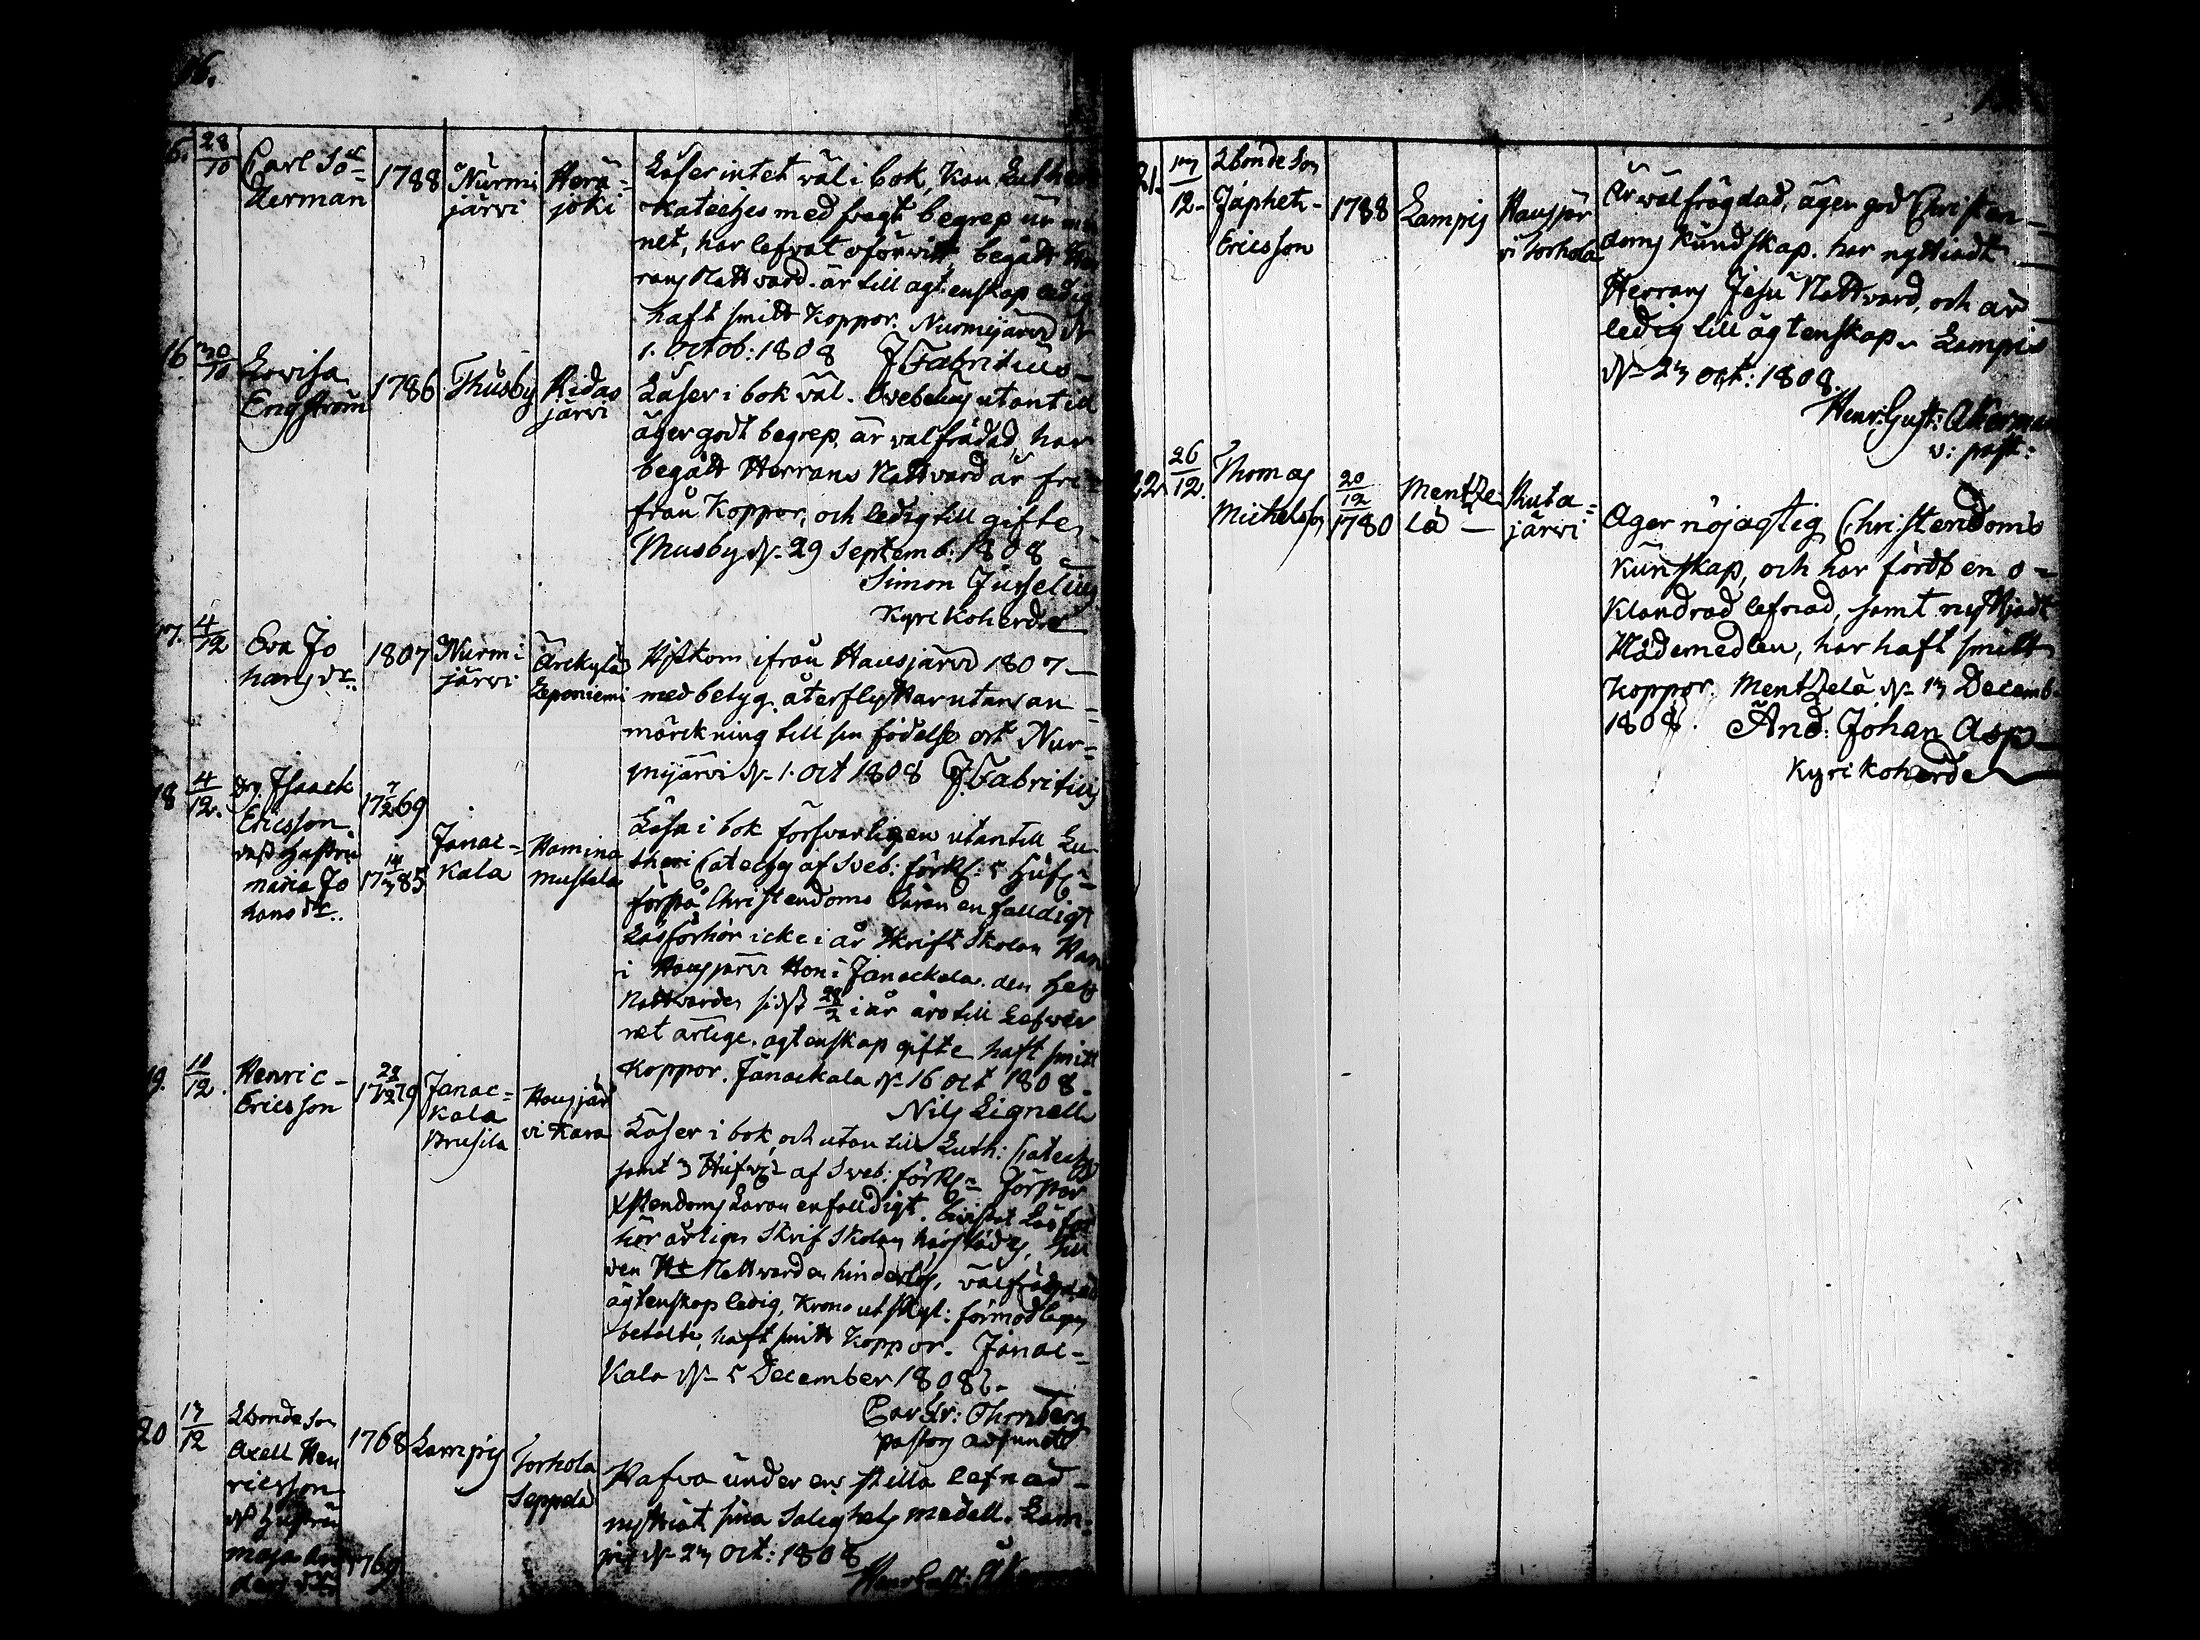 6.
28/10
Carl Sö=
derman
1788
Nurmi
järvi
Herä=
joki
Läser intet väl i bok, kan Lutheri
Kateches med svagt begrep ur min
net, har lefvat oförvitt begått Her
rans Nattvard. är till ägtenskap ledig
haft smitt Koppor. Nurmijärvi d.
1. Octob: 1808 J Fabritius
16
30/10
Lovisa
Engström
1786
Thusby
Ridas
järvi
Läser i bok väl. Svebelius utantill
äger godt begrep, är välfrädad, har
begått Herrans Nattvard är fri
från Koppor, och ledig till gifte.
Thusby d. 29 Septemb: 1808
Simon Jusselius
Kyrkoherde
17.
4/12
Eva Jo
hans dr.
1807
Nurmi
järvi
Leponiemi
ifrån Hausjärvi 1807
med betyg. återflyttar utan an=
märckning till sin födelse ort Nur=
mijärvi d. 1. Oct 1808 J. Fabritius
18
4/12.
Isaack
Ericsson
dess hustru
Maria Jo
hans dr.
7/12 1769
14/3 1785
Janac=
kala
Hamina
mustala
Läsa i bok försvarligen utantill Lu=
theri Catechs af Sveb: förkl: 5 Hufv:
förstå Christendoms Läran enfaldigt
Läsförhör icke i år Skrift Skolan Han
i Hausjärvi Hon i Janackala. den Hel
Nattvarden sidst 28/2 i år äro till Lefver
net ärlige. ägtenskap gifte haft smitt
Koppor. Janackala d. 16 Oct 1808.
Nils Lignell
19.
18/12.
Henric
Ericsson
28/12 1779
Janac=
kala
Brusila
Hausjär
vi Kara
Läser i bok och utan till Luth: Catechs
samt 3 Hufv: af Sveb: förkl: förstår
Xstendoms Läran enfaldigt. bivistat Läsför
hör årligen Skrif Skolan
den H. Nattvarden hinderlös, välfrägdad
ägtenskap ledig, Krono utskyl: förmodligen
betalte, haft smitt Koppor. Janac=
kala d. 5 December 1808.
Thornberg
pastors adjunct
20
17/12
Lbonde Son
Axell Hen
ricsson
dess hustru
Maja An
ders dr.
1768
1769
Lampis
Torhola
Seppälä
Hafva under en stilla lefnad
nyttiat sina Salighets medell. Lam=
pis d. 27 Oct: 1808
21.
17/12
Lbonde Son
Japhet
Ericsson
1788
Lampis
Hausjär
vi Torhola
Är välfrägdad, äger god Christen=
doms Kundskap. har nyttiadt
Herrans Jesu Nattvard, och är
ledig till ägtenskap. Lampis
d. 27 Oct: 1808.
Henr: Gust: Åkerman
v: past:
22
26/12.
Thomas
Michelsson
20/12 1780
Mentze
lä
Kuta=
järvi
Äger nöjagtig Christendoms
Kunskap, och har fördt en o=
klandrad lefnad, samt nyttjadt
Nådemedlen, har haft smitt
Koppor. Mentzelä d. 17 Decemb.
1808. And: Johan Asp
Kyrkoherde